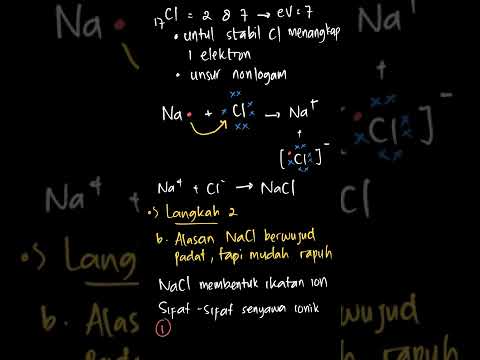 17Cl = 2 8 7 → eV = 7
• untul stabil Cl menangkap
1 elektron
• unsur nonlogam
Na• + Cl → Na⁺
+
[Cl]⁻
Na⁺ + Cl⁻ → NaCl
•> Langkah 2
b. Alasan NaCl berwujud
padat, tapi mudah rapuh
NaCl membentuk ikatan ion
Sifat-sifat senyawa ionik
①